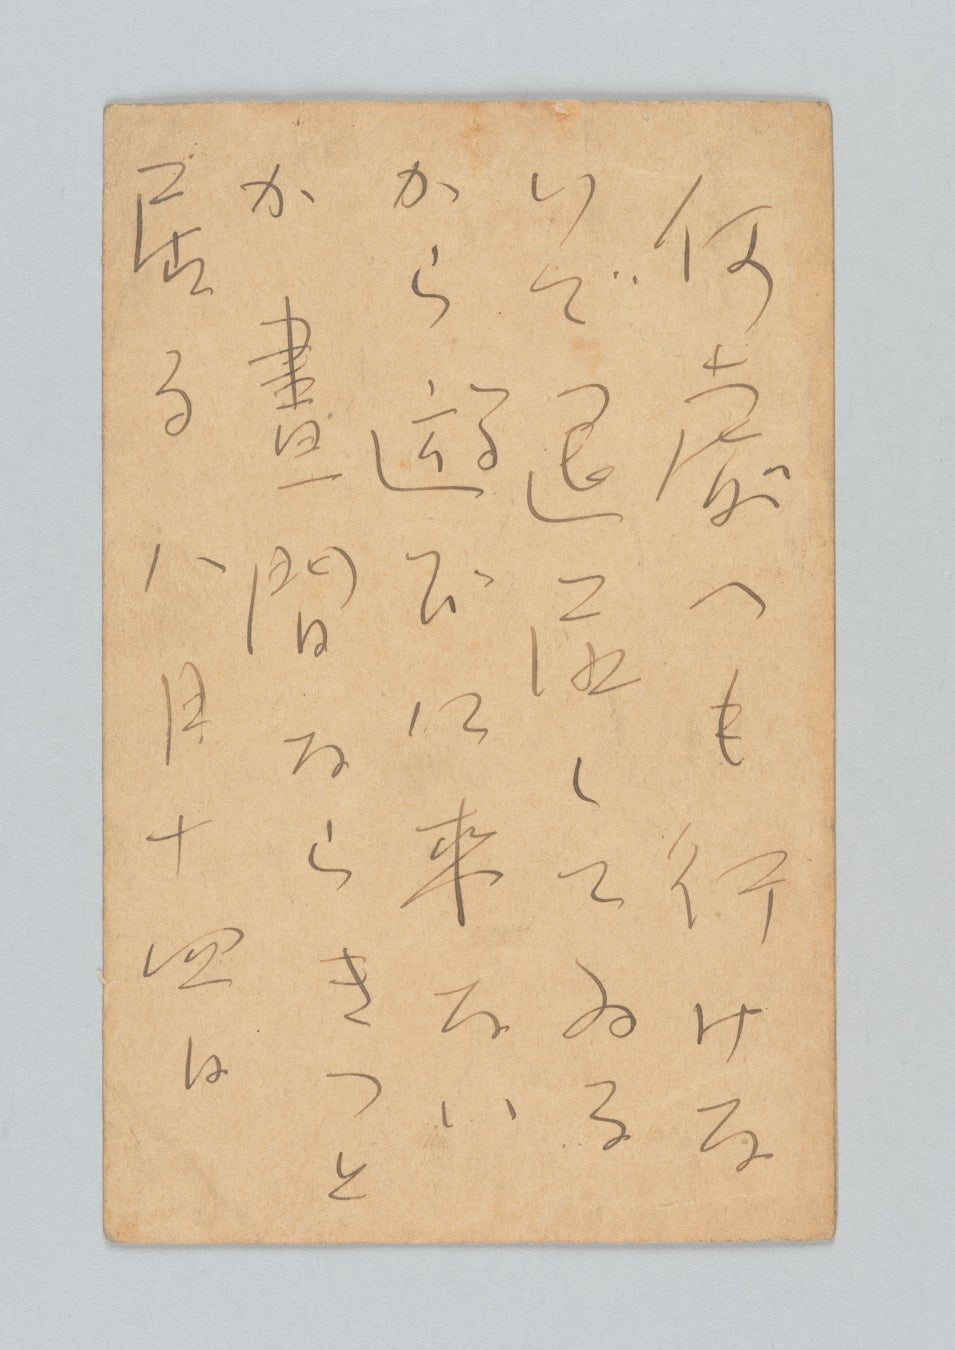 何處へも行けな
いで退屈してゐる
から遊びに来ない
か 晝間ならきつと
居る 八月十四日